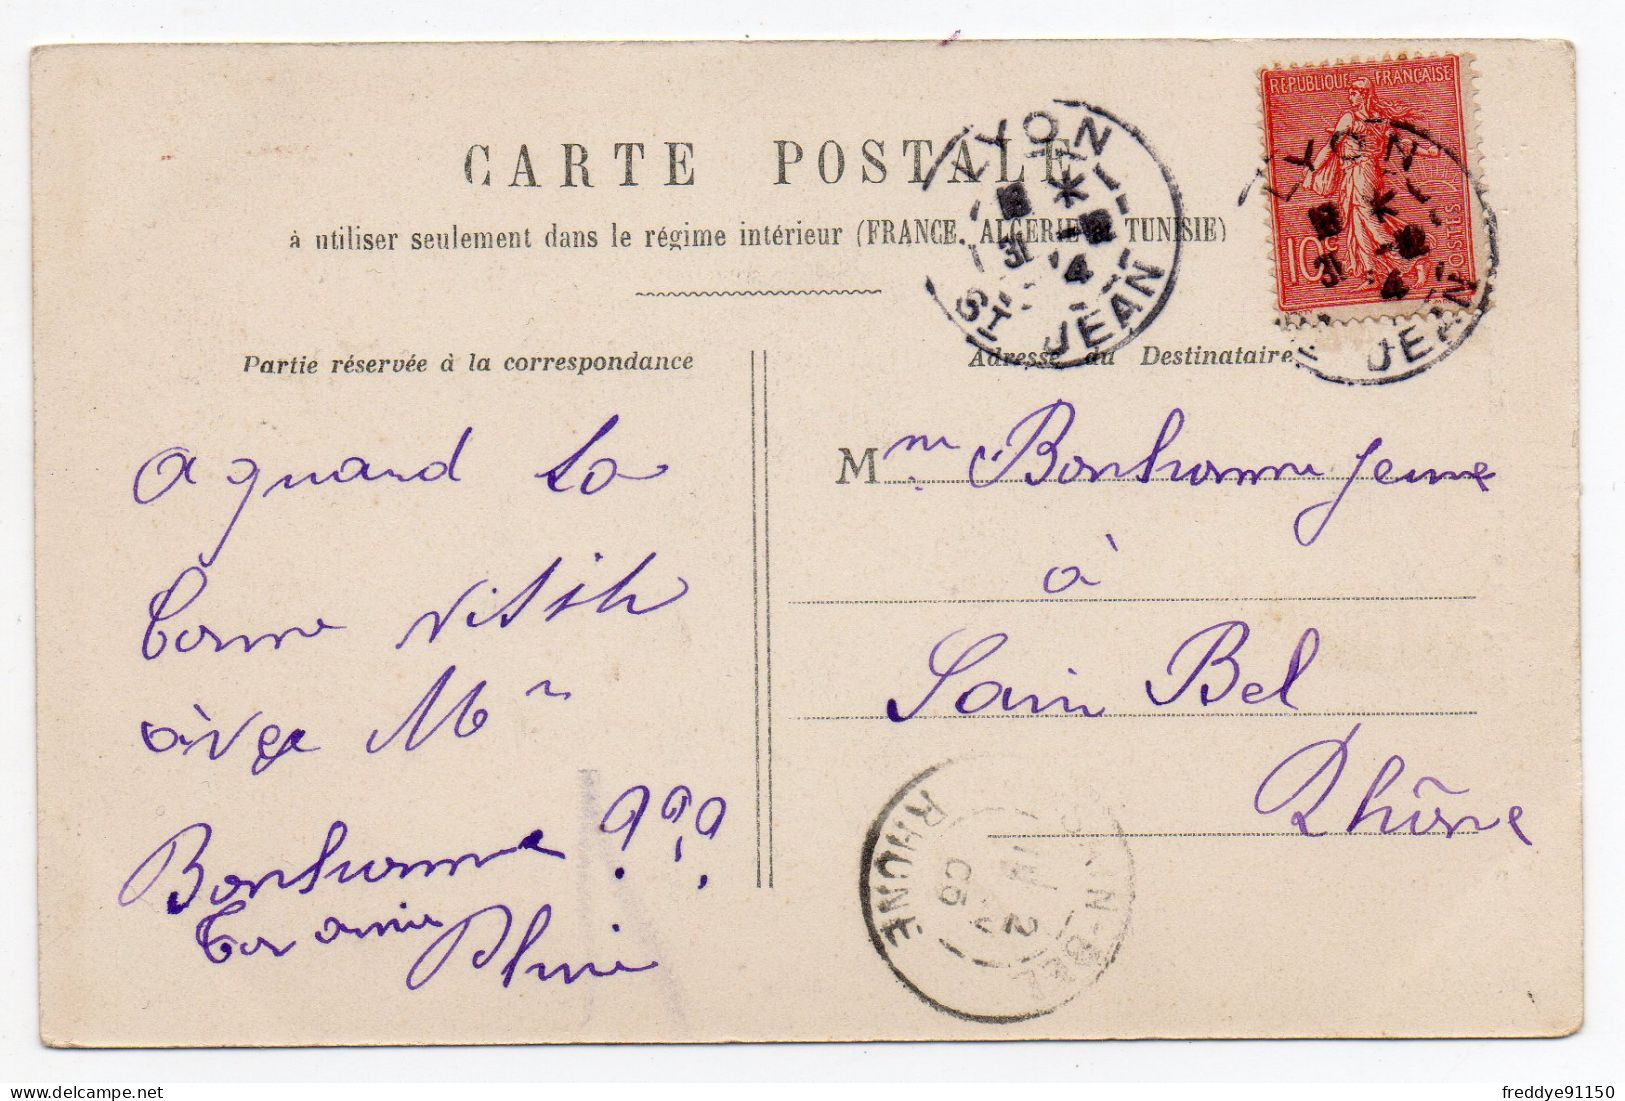 CARTE POSTALE
à utiliser seulement dans le régime intérieur (FRANCE, ALGÉRIE & TUNISIE)
REPUBLIQUE FRANÇAISE
10c
POSTES
LYON
31 4
ST JEAN
LYON
31 4
JEAN
Partie réservée à la correspondance
a quand la
bonne visite
à Mm
Bonhomme ???
ton amie
Adresse du Destinataire
Mme Bonhomme Jeune
à
Sain Bel
Rhône
SAIN-BEL
2
05
RHONE
freddye91150